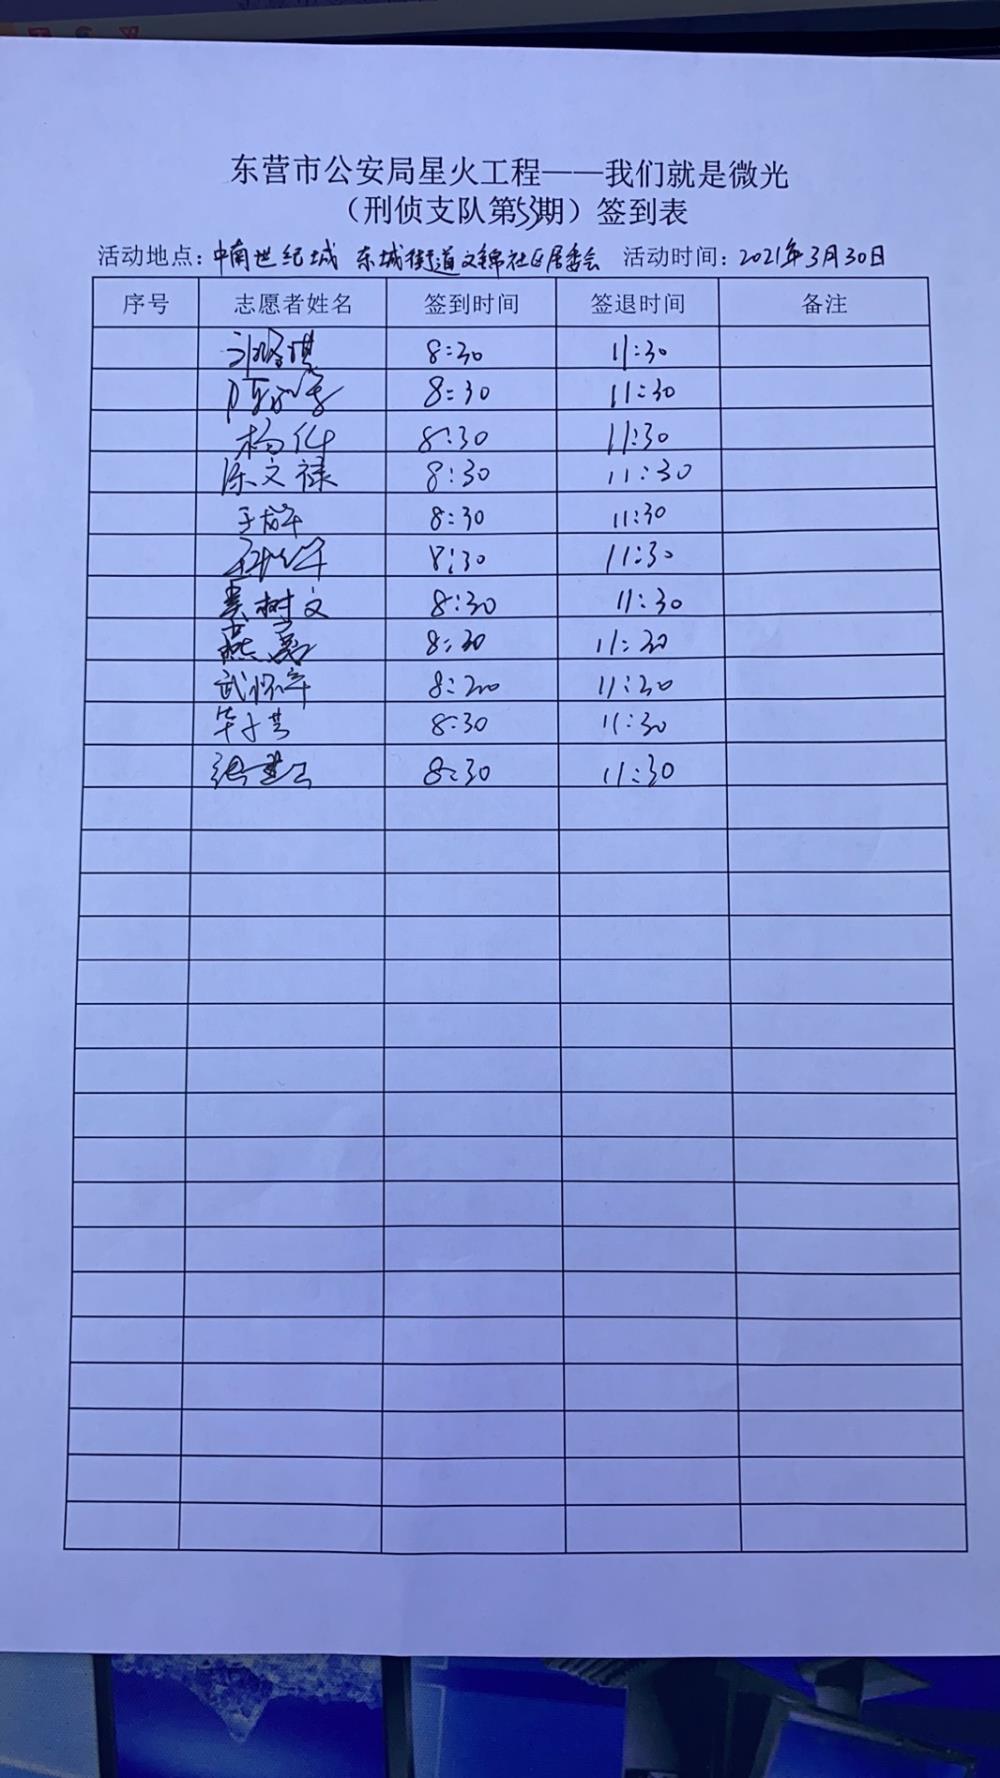 东营市公安局星火工程——我们就是微光
（刑侦支队第53期）签到表
活动地点：中南世纪城 东城街道文锦社区居委会 活动时间：2021年3月30日
序号 志愿者姓名 签到时间 签退时间 备注
8:30 11:30
8:30 11:30
杨伟 8:30 11:30
陈文禄 8:30 11:30
8:30 11:30
8:30 11:30
娄树文 8:30 11:30
燕 8:30 11:30
武怀军 8:30 11:30
8:30 11:30
8:30 11:30